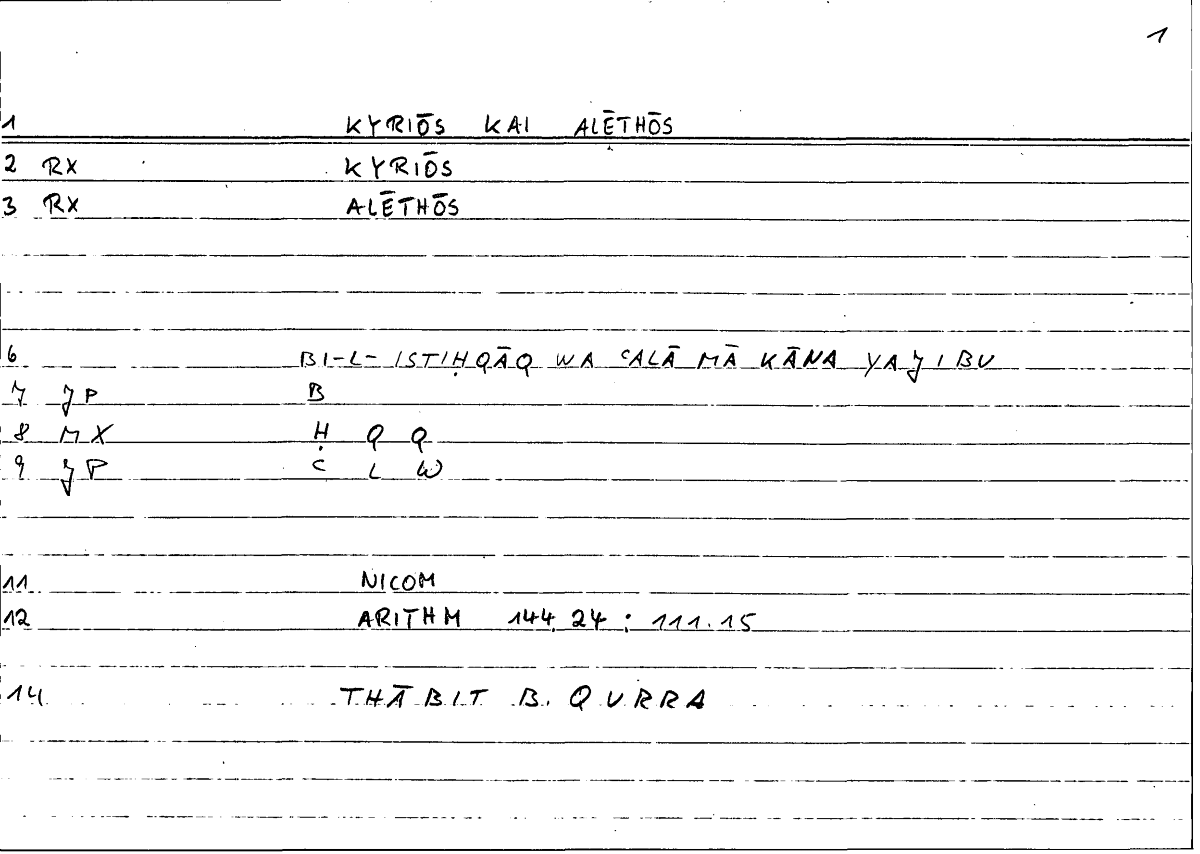 1
1 KYRIŌS KAI ALĒTHŌS
2 RX KYRIŌS
3 RX ALĒTHŌS
6 BI-L-ISTIḤQĀQ WA ʿALĀ MĀ KĀNA YAJIBU
7 JP B
8 MX Ḥ Q Q
9 JP ʿ L W
11 NICOM
12 ARITHM 144.24 : 111.15
14 THĀBIT B. QURRA